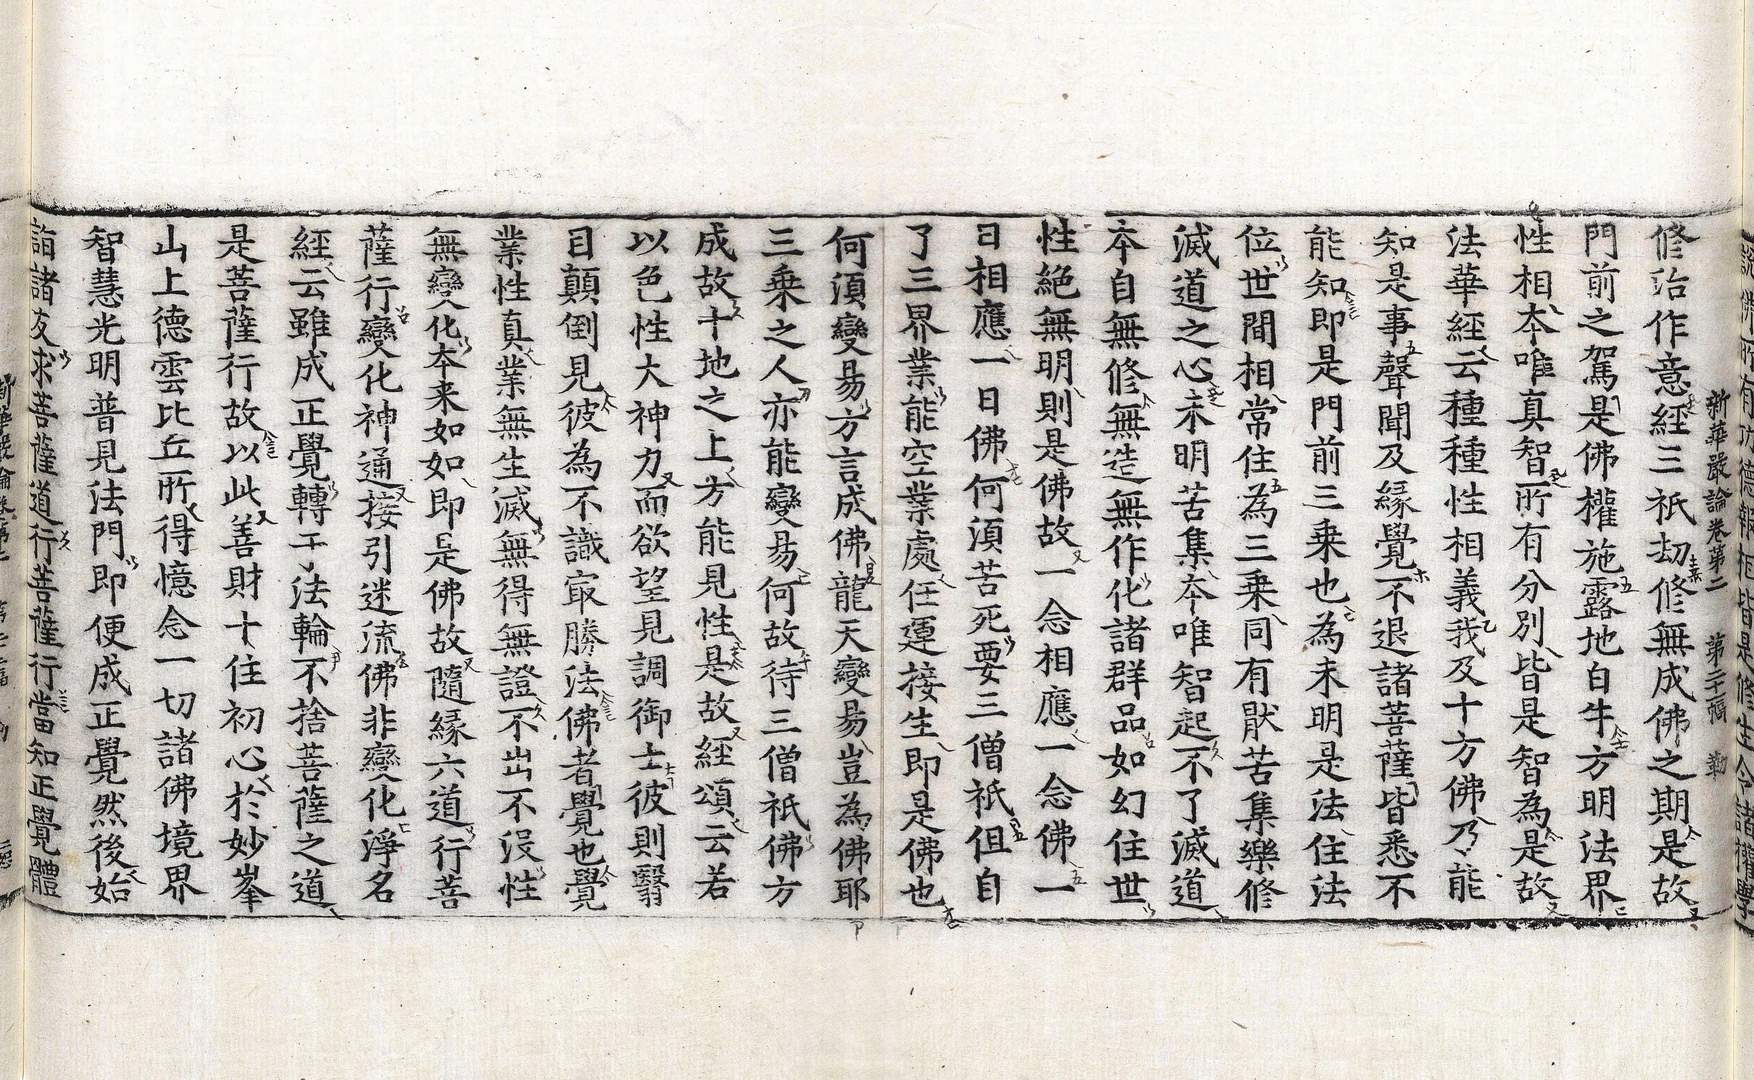 説佛所有功德報相皆是修生令諸權學
新華嚴論卷第二 第二十張 勒
修治作意經三祇劫修無成佛之期是故
門前之駕是佛權施露地白牛方明法界
性相本唯真智所有分別皆是智為是故
法華經云種種性相義我及十方佛乃能
知是事聲聞及緣覺不退諸菩薩皆悉不
能知即是門前三乗也為未明是法住法
位世間相常住為三乗同有猒苦集樂修
滅道之心未明苦集本唯智起不了滅道
本自無修無造無作化諸群品如幻住世
性絕無明則是佛故一念相應一念佛一
日相應一日佛何湏苦死要三僧祇但自
了三界業能空業處任運接生即是佛也
何湏變易方言成佛龍天變易豈為佛耶
三乗之人亦能變易何故待三僧祇佛方
成故十地之上方能見性是故經頌云若
以色性大神力而欲望見調御士彼則翳
目顛倒見彼為不識㝡勝法佛者覺也覺
業性真業無生滅無得無證不出不沒性
無變化本来如如即是佛故隨緣六道行菩
薩行變化神通接引迷流佛非變化淨名
經云雖成正覺轉于法輪不捨菩薩之道
是菩薩行故以此善財十住初心於妙峯
山上德雲比丘所得憶念一切諸佛境界
智慧光明普見法門即便成正覺然後始
詣諸友求菩薩道行菩薩行當知正覺體